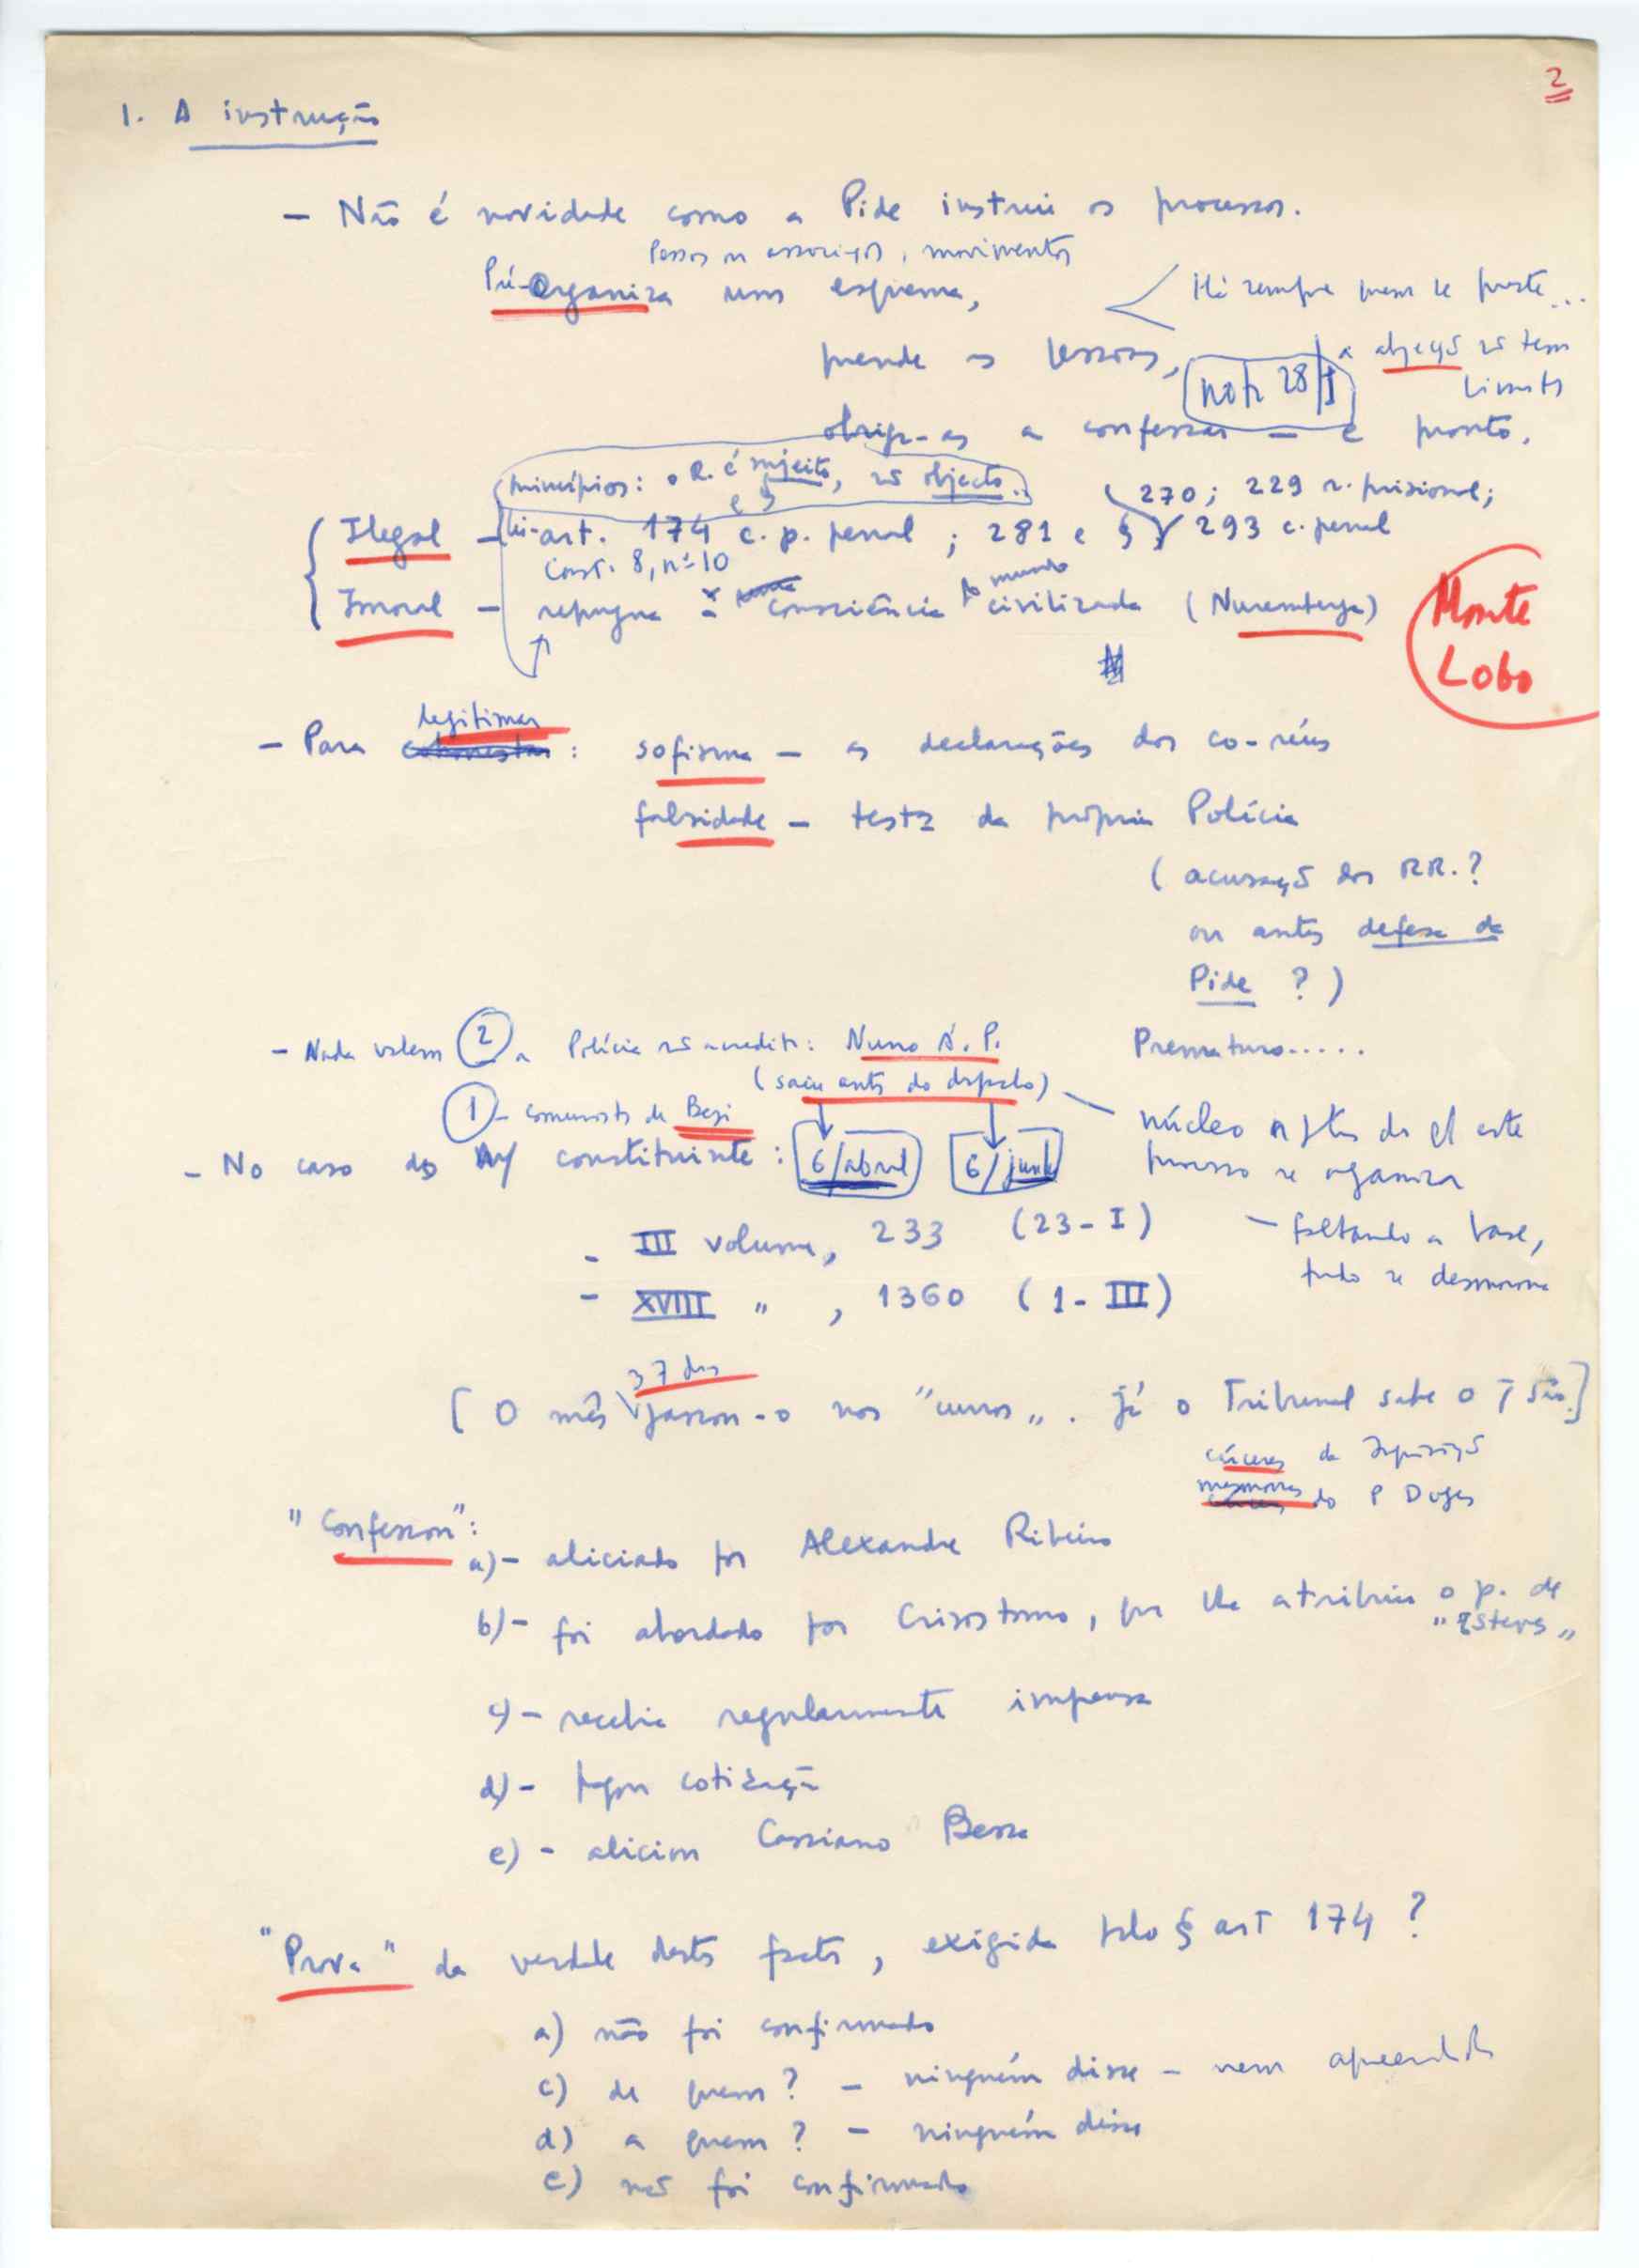 2
1. A instrução
- Não é novidade como a Pide instrui os processos.
movimentos
Pré-Organiza um esquema,
Há sempre quem se preste...
prende as pessoas,
a abjeçõ nõ tem
limites
not 28/I
obriga-as a confessar - e pronto.
princípios: o R. é sujeito, nõ objecto.
270; 229 r. prisional;
Ilegal - lei-art. 174 e § c. p. penal ; 281 e § 293 c. penal
Const. 8, nº 10
Imoral - repugna à consciência do mundo civilizado (Nuremberga)
Monte
Lobo
legitimar
- Para cohonestar : sofisma - as declarações dos co-réus
falsidade - testª da própria Polícia
( acusaçõ dos RR. ?
ou antes defesa da
Pide ? )
- Nada valem 2 a Polícia nõ acredita: Nuno A. P.
Prematuro.....
(saiu antes do despacho)
1 - comunista de Beja
núcleo a ptir do ql este
processo se organiza
- No caso do constituinte : 6/abril 6/junh
- III volume, 233 (23-I)
- faltando a base,
tudo se desmorona
- XVIII " , 1360 (1-III)
37 dias
[ O mês passou-o nos "curros". Já o Tribunal sabe o q são.]
cárceres da Inquisiçõ
masmorras do P Doges
"Confessou":
a) - aliciado por Alexandre Ribeiro
b) - foi abordado por Crisostomo, que lhe atribuiu o p. de
"Esteves"
c) - recebia regularmente imprensa
d) - pagou cotização
e) - aliciou Cassiano Bessa
"Prova" da verdade destes factos, exigida pelo § art 174 ?
a) não foi confirmado
c) de quem? - ninguém disse - nem apreendida
d) a quem? - ninguém disse
e) nõ foi confirmado